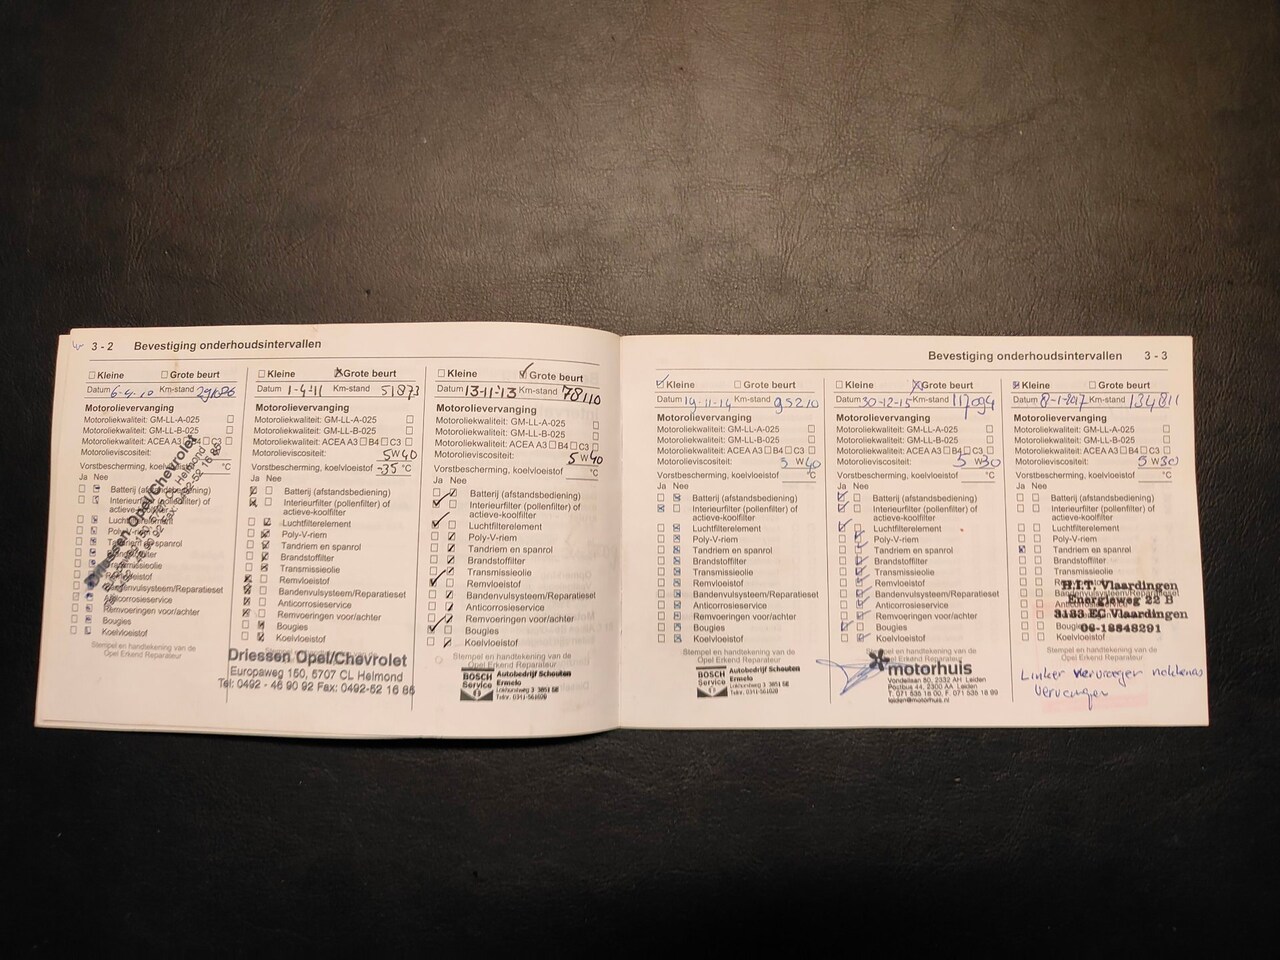 3 - 2 Bevestiging onderhoudsintervallen
Kleine Grote beurt
Datum 6-4-10 Km-stand
Motorolievervanging
Motoroliekwaliteit: GM-LL-A-025
Motoroliekwaliteit: GM-LL-B-025
Motoroliekwaliteit: ACEA A3 B4 C3
Motorolieviscositeit:
Vorstbescherming, koelvloeistof °C
Ja Nee
Batterij (afstandsbediening)
Interieurfilter (pollenfilter) of
actieve-koolfilter
Luchtfilterelement
Poly-V-riem
Tandriem en spanrol
Brandstoffilter
Transmissieolie
Remvloeistof
Bandenvulsysteem/Reparatieset
Anticorrosieservice
Remvoeringen voor/achter
Bougies
Koelvloeistof
Stempel en handtekening van de
Opel Erkend Reparateur
Driessen Opel/Chevrolet
Kleine Grote beurt
Datum 1-4-11 Km-stand 51873
Motorolievervanging
Motoroliekwaliteit: GM-LL-A-025
Motoroliekwaliteit: GM-LL-B-025
Motoroliekwaliteit: ACEA A3 B4 C3
Motorolieviscositeit: 5W40
Vorstbescherming, koelvloeistof -35 °C
Ja Nee
Batterij (afstandsbediening)
Interieurfilter (pollenfilter) of
actieve-koolfilter
Luchtfilterelement
Poly-V-riem
Tandriem en spanrol
Brandstoffilter
Transmissieolie
Remvloeistof
Bandenvulsysteem/Reparatieset
Anticorrosieservice
Remvoeringen voor/achter
Bougies
Koelvloeistof
Stempel en handtekening van de
Driessen Opel/Chevrolet
Europaweg 150, 5707 CL Helmond
Tel: 0492 - 46 90 92 Fax: 0492-52 16 85
Kleine Grote beurt
Datum 13-11-'13 Km-stand 78110
Motorolievervanging
Motoroliekwaliteit: GM-LL-A-025
Motoroliekwaliteit: GM-LL-B-025
Motoroliekwaliteit: ACEA A3 B4 C3
Motorolieviscositeit: 5W40
Vorstbescherming, koelvloeistof °C
Ja Nee
Batterij (afstandsbediening)
Interieurfilter (pollenfilter) of
actieve-koolfilter
Luchtfilterelement
Poly-V-riem
Tandriem en spanrol
Brandstoffilter
Transmissieolie
Remvloeistof
Bandenvulsysteem/Reparatieset
Anticorrosieservice
Remvoeringen voor/achter
Bougies
Koelvloeistof
Stempel en handtekening van de
Opel Erkend Reparateur
BOSCH
Service
Autobedrijf Schouten
Ermelo
Bevestiging onderhoudsintervallen 3 - 3
Kleine Grote beurt
Datum 19-11-14 Km-stand 95210
Motorolievervanging
Motoroliekwaliteit: GM-LL-A-025
Motoroliekwaliteit: GM-LL-B-025
Motoroliekwaliteit: ACEA A3 B4 C3
Motorolieviscositeit: 5W40
Vorstbescherming, koelvloeistof °C
Ja Nee
Batterij (afstandsbediening)
Interieurfilter (pollenfilter) of
actieve-koolfilter
Luchtfilterelement
Poly-V-riem
Tandriem en spanrol
Brandstoffilter
Transmissieolie
Remvloeistof
Bandenvulsysteem/Reparatieset
Anticorrosieservice
Remvoeringen voor/achter
Bougies
Koelvloeistof
Stempel en handtekening van de
Opel Erkend Reparateur
BOSCH
Service
Autobedrijf Schouten
Ermelo
Kleine Grote beurt
Datum 30-12-15 Km-stand 117094
Motorolievervanging
Motoroliekwaliteit: GM-LL-A-025
Motoroliekwaliteit: GM-LL-B-025
Motoroliekwaliteit: ACEA A3 B4 C3
Motorolieviscositeit: 5W30
Vorstbescherming, koelvloeistof °C
Ja Nee
Batterij (afstandsbediening)
Interieurfilter (pollenfilter) of
actieve-koolfilter
Luchtfilterelement
Poly-V-riem
Tandriem en spanrol
Brandstoffilter
Transmissieolie
Remvloeistof
Bandenvulsysteem/Reparatieset
Anticorrosieservice
Remvoeringen voor/achter
Bougies
Koelvloeistof
motorhuis
Vondellaan 80, 2332 AH Leiden
Postbus 44, 2300 AA Leiden
T. 071 535 18 00, F. 071 535 18 99
leiden@motorhuis.nl
Kleine Grote beurt
Datum 8-1-2017 Km-stand 134811
Motorolievervanging
Motoroliekwaliteit: GM-LL-A-025
Motoroliekwaliteit: GM-LL-B-025
Motoroliekwaliteit: ACEA A3 B4 C3
Motorolieviscositeit: 5W30
Vorstbescherming, koelvloeistof °C
Ja Nee
Batterij (afstandsbediening)
Interieurfilter (pollenfilter) of
actieve-koolfilter
Luchtfilterelement
Poly-V-riem
Tandriem en spanrol
Brandstoffilter
Transmissieolie
Remvloeistof
Bandenvulsysteem/Reparatieset
Anticorrosieservice
Remvoeringen voor/achter
Bougies
Koelvloeistof
H.I.T. Vlaardingen
Energieweg 22 B
3133 EC Vlaardingen
06-18848291
Stempel en handtekening van de
Opel Erkend Reparateur
Linker nokkenas
vervangen